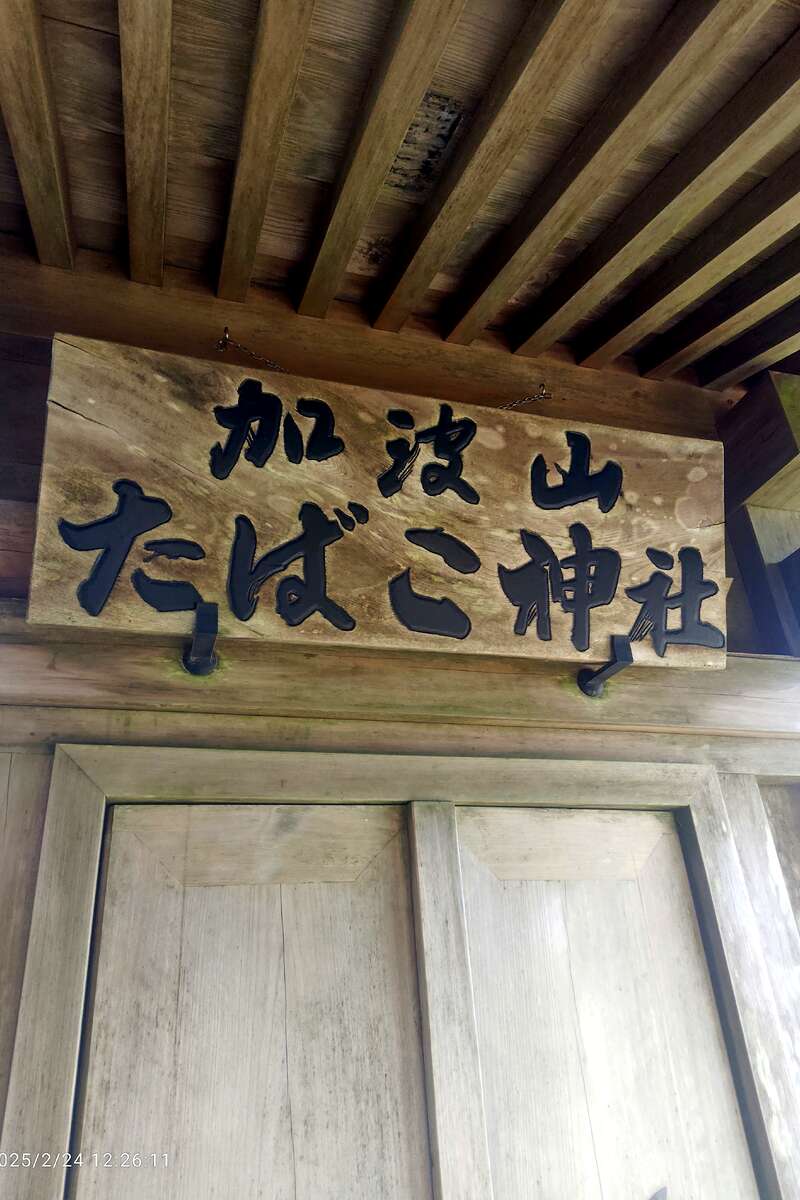 加波山
たばこ神社
025/2/24 12:26:11